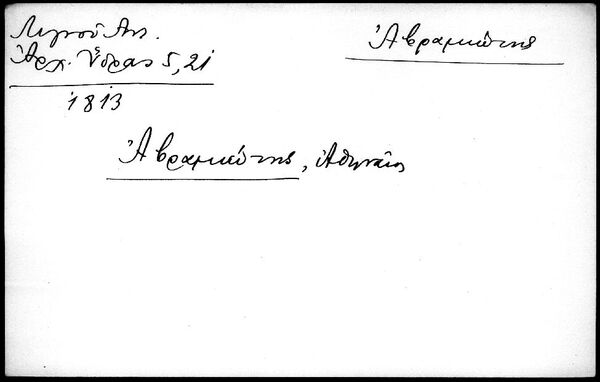 Λιγνοῦ Αντ.
Ἀρχ. Ὕδρας 5, 21
1813
Ἀβραμιώτης
Ἀβραμιώτης, Ἀθηναῖος